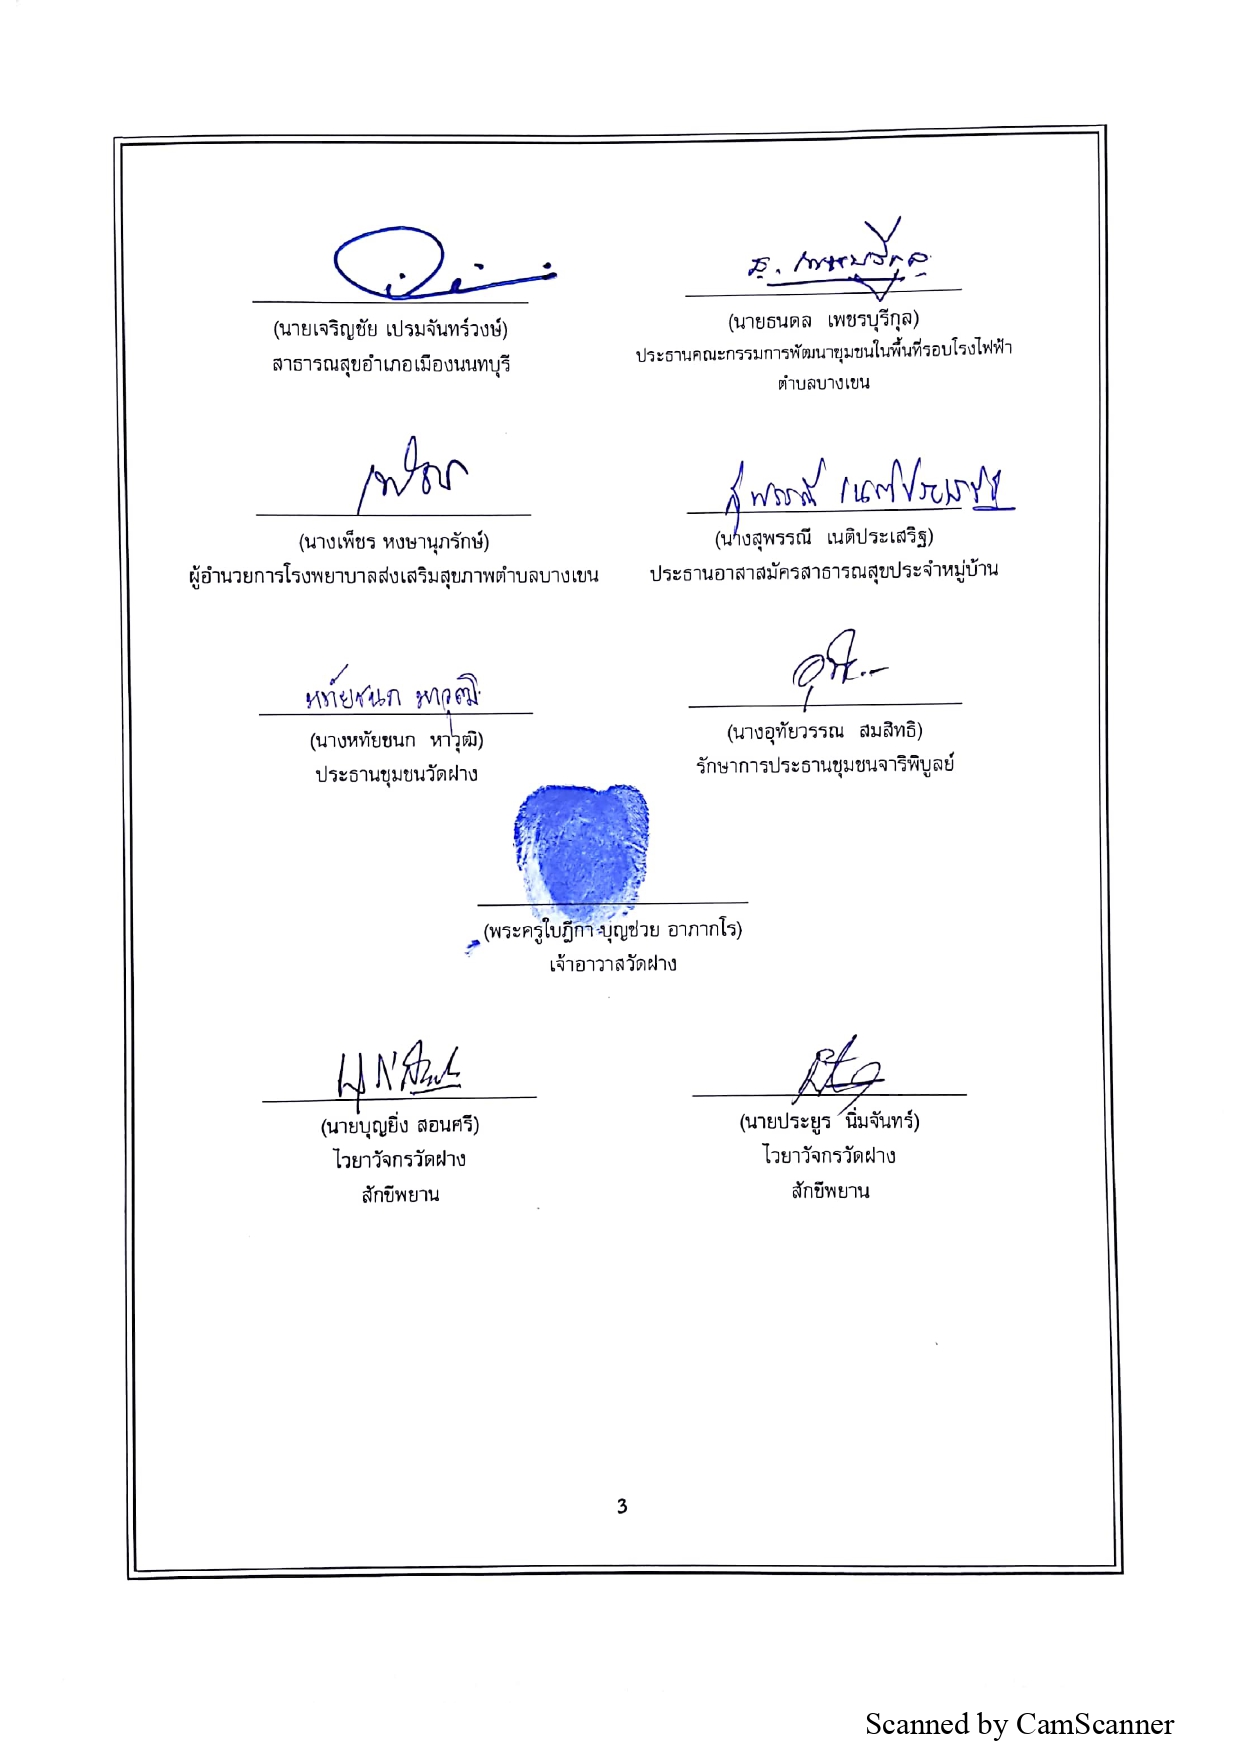 (นายเจริญชัย เปรมจันทร์วงษ์)
สาธารณสุขอำเภอเมืองนนทบุรี
ธ. เพชรบุรีกุล
(นายธนดล เพชรบุรีกุล)
ประธานคณะกรรมการพัฒนาชุมชนในพื้นที่รอบโรงไฟฟ้า
ตำบลบางเขน
(นางเพ็ชร หงษานุภรักษ์)
ผู้อำนวยการโรงพยาบาลส่งเสริมสุขภาพตำบลบางเขน
สุพรรณี เนติประเสริฐ
(นางสุพรรณี เนติประเสริฐ)
ประธานอาสาสมัครสาธารณสุขประจำหมู่บ้าน
หทัยชนก หาวุฒิ
(นางหทัยชนก หาวุฒิ)
ประธานชุมชนวัดฝาง
(นางอุทัยวรรณ สมสิทธิ)
รักษาการประธานชุมชนจาริพิบูลย์
(พระครูใบฎีกา บุญช่วย อาภากโร)
เจ้าอาวาสวัดฝาง
(นายบุญยิ่ง สอนศรี)
ไวยาวัจกรวัดฝาง
สักขีพยาน
(นายประยูร นิ่มจันทร์)
ไวยาวัจกรวัดฝาง
สักขีพยาน
3
Scanned by CamScanner